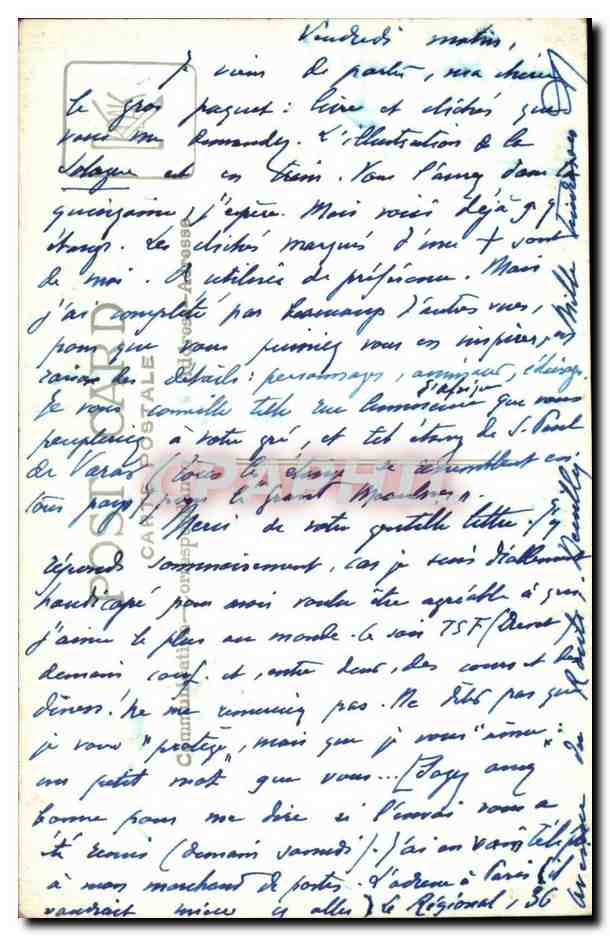 Vendredi matin,
Je viens de poster, ma chère
le gros paquet : livre et clichés que
vous me demandez. L'illustration de la
Sologne est en train. Vous l'aurez dans
quinzaine, j'espère. Mais voici déjà
étangs. Les clichés marqués d'une + sont
de moi. À utiliser de préférence. Mais
j'ai complété par beaucoup d'autres vues,
pour que vous puissiez vous en inspirer, en
raison des détails : personnages, animaux, éclairage.
Je vous conseille telle rue d'afrique que vous
peuplerez à votre gré, et tel étang de S. Paul
de Varax (tous les étangs se ressemblent en
tous pays) pour le "Grand Meaulnes".
Merci de votre gentille lettre. J'y
réponds sommairement, car je suis
handicapé pour avoir voulu être agréable à
j'aime le plus au monde. Ce soir TSF
demain conf. et, entre deux, des cours et des
dîners. Ne me remerciez pas. Ne dites pas que
je vous "protège", mais que je vous "aime"
un petit mot que vous... (Soyez assez
bonne pour me dire si l'envoi vous a
été remis (demain samedi). J'ai en vain téléph.
à mon marchand de postes. L'adresse à Paris (il
vaudrait mieux y aller) Le Régional, 36
avenue du Roule, Neuilly. Mille tendresses
POST CARD
CARTE POSTALE
Communication - Correspondance
Address - Adresse